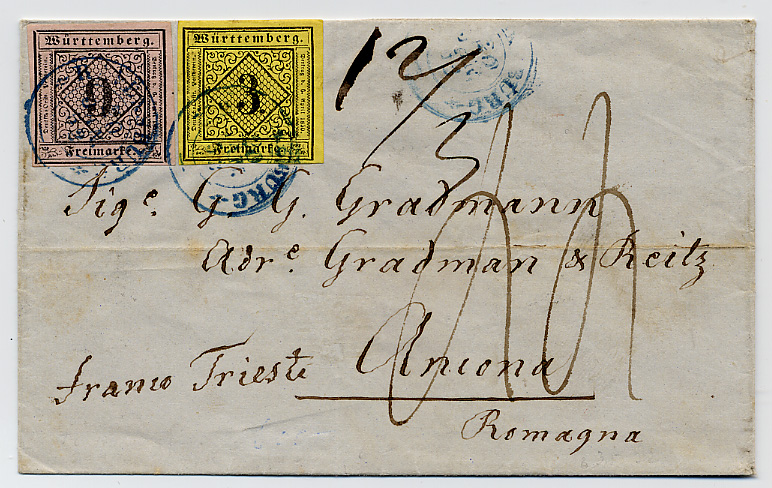 Württemberg.
9
Freimarke
Württemberg.
3
Freimarke
12/3
BURG
BURG
Sige. G. G. Gradmann
Adre. Gradman & Reitz
franco Trieste Ancona
Romagna